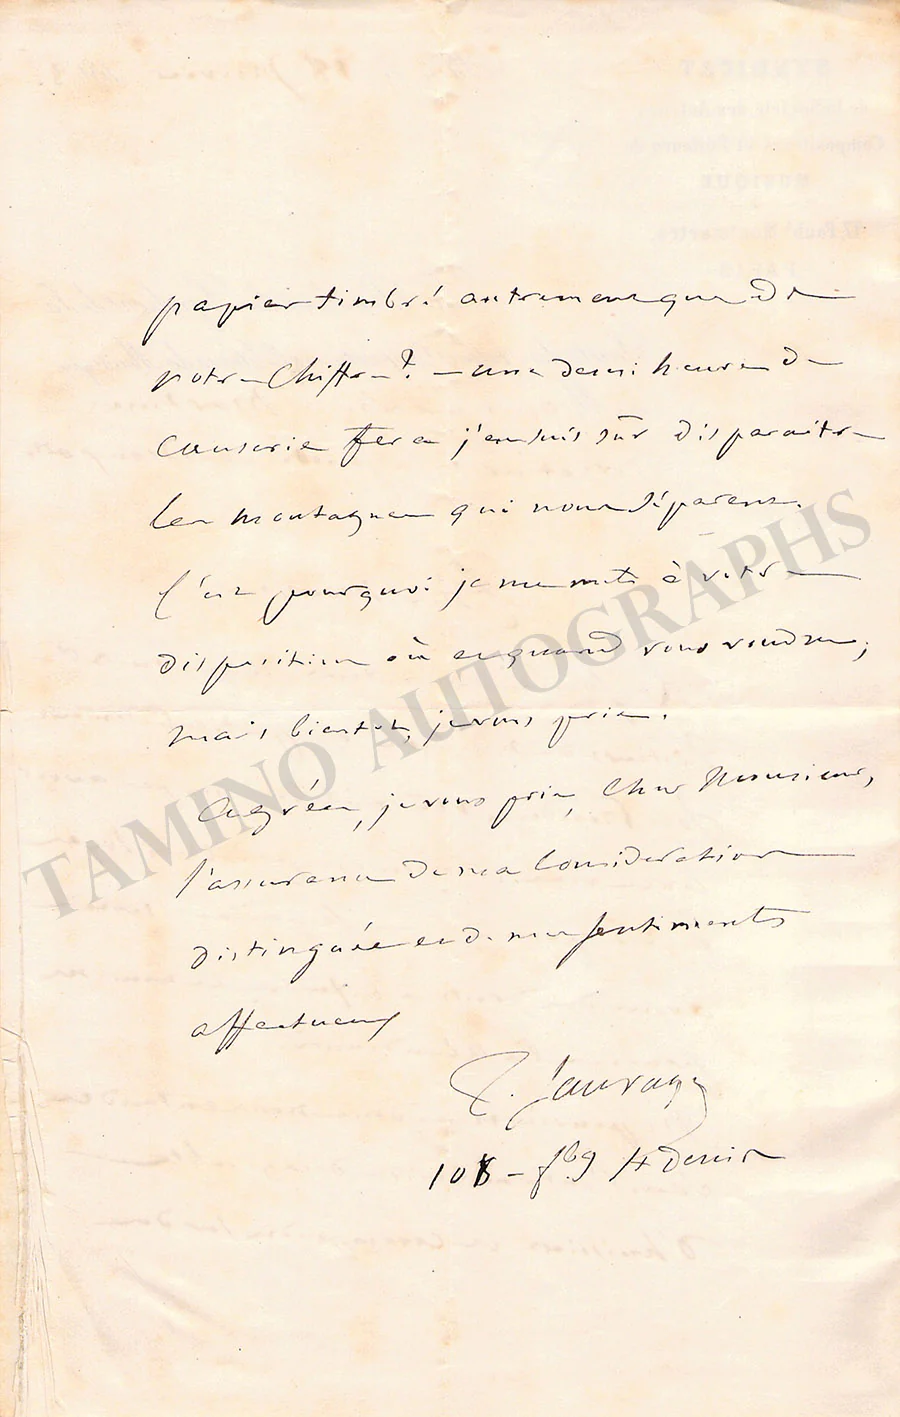 papier timbré autrement que de
votre chiffre? — une demi heure de
causerie fera j'en suis sûr disparaitre
les montagnes qui nous séparent.
C'est pourquoi je me mets à votre
disposition où et quand vous voudrez;
mais bientot, je vous prie.
Agréez, je vous prie, Cher Monsieur,
l'assurance de ma Consideration
distinguée et de mes sentiments
affectueux
T. Sauvage
108 - fbg St Denis
TAMINO AUTOGRAPHS